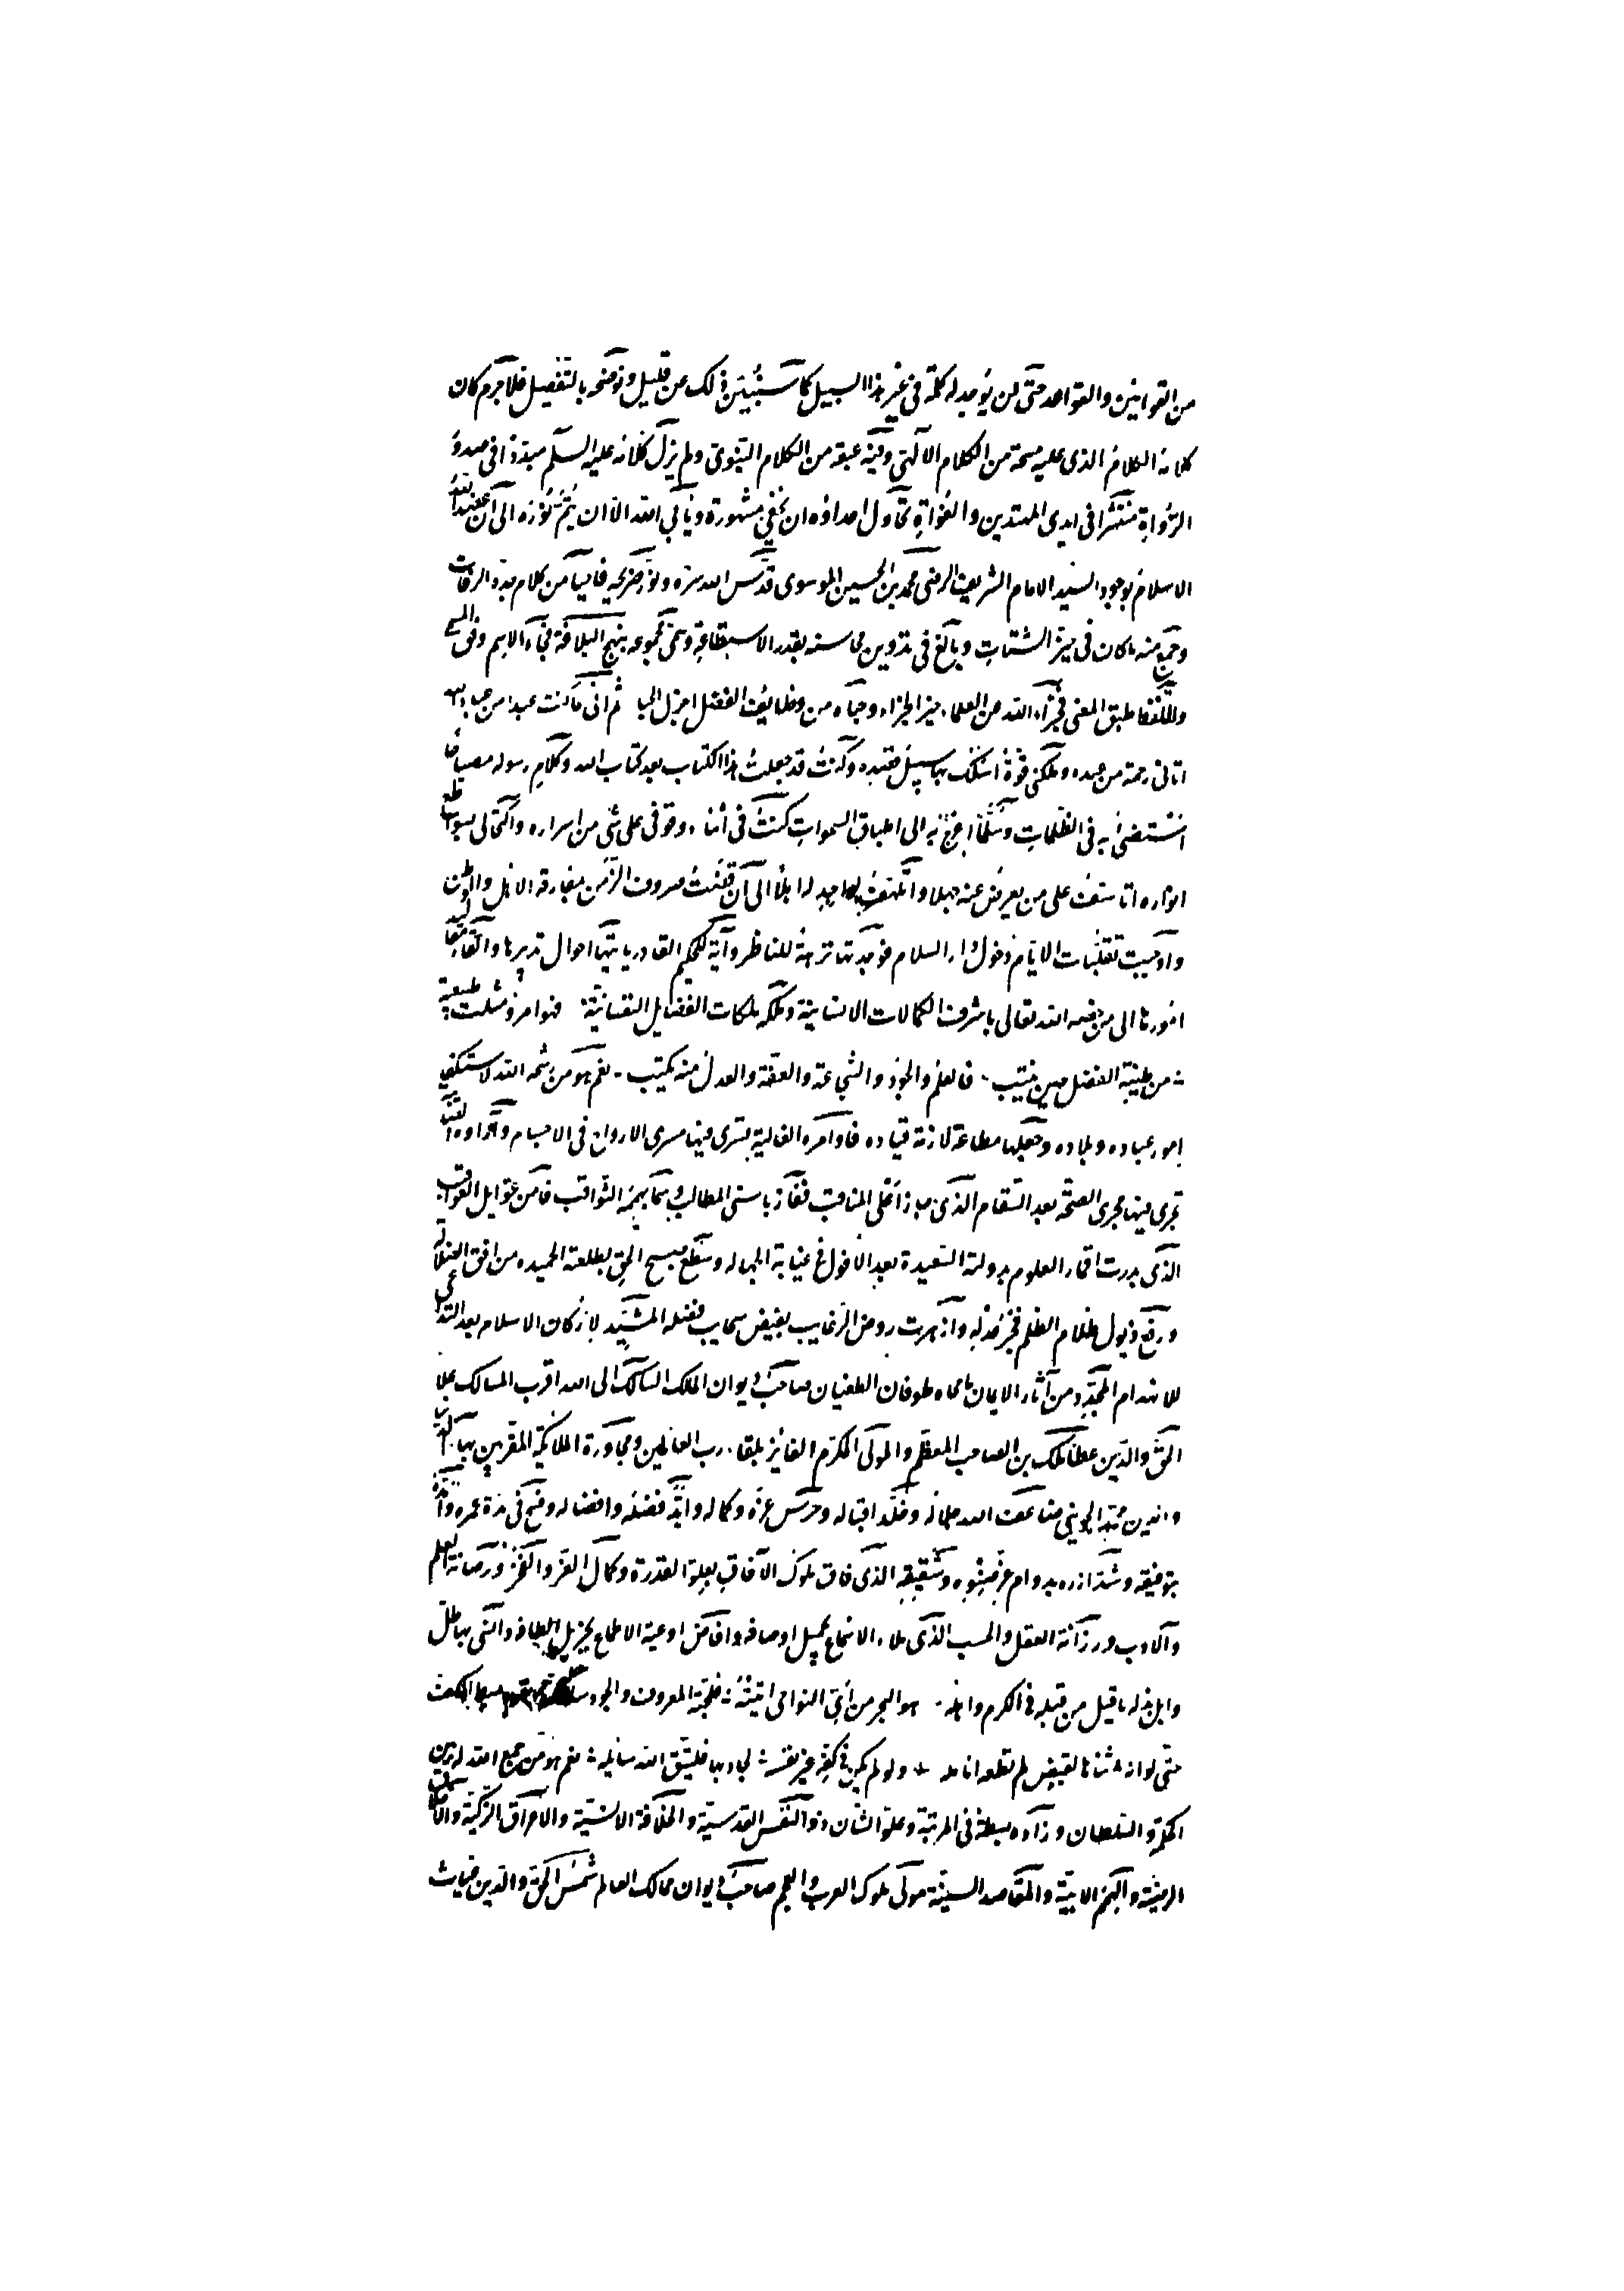 من القوانين والقواعد حتى لن يوجد له كلمة فى غير هذا السبيل كما سنبين ذلك عن قليل ونوضحه بالتفصيل فلا جرم كان
كلامه الكلام الذى عليه مسحة من الكلام الالهى وفيه عبقة من الكلام النبوى ولم يزل كلامه عليه السلم مبددا فى صدور
الرواة منتشرا فى ايدى المهتدين والغواة تحاول اعداؤه ان تخفى مشهوره ويأبى الله الا ان يتم نوره الى ان عضد الله
الاسلام بوجود السيد الامام الشريف الرضى محمد بن الحسين الموسوى قدس الله سره ونور ضريحه فاحيا من كلامه الرفات
وجمع منه ما كان فى حيز الشتات وبالغ فى تدوين محاسنه بقدر الاستطاعة وسمى مجموعه بنهج البلاغة فجاء الاسم وفق المسمى
واللفظ طبق المعنى فجزاه الله عن العلماء خير الجزاء وحباه من وظايف الفضل اجزل الحبا ثم انى كنت عبدا من عباد الله
اتانى رحمة من عنده وملكنى قوة اسلك بها سبيل قصده وكنت قد جعلت هذا الكتاب بعد كتاب الله وكلام رسوله مصباحا
استضئ به فى الظلمات وسلما اعرج به الى اطباق السموات كنت فى اثناء وقوفى على شئ من اسراره واكتحالى بسواطع
انواره اتاسف على من يعرض عنه جهلا واتلهف لو اجد له اهلا الى ان قضت صروف الزمن بمفارقة الاهل والوطن
واوجبت تقلبات الايام دخول دار السلام فوجدتها نزهة للناظر وآية للحكيم القادر بانتهاء احوال تدبيرها والقاء مقاليد
امورها الى من خصه الله تعالى باشرف الكمالات الانسانية وملكه ملكات الفضايل النفسانية فهو امرؤ مثلت طبيعته
من طينة الفضل حين ينتسب فالعلم والجود والشجاعة والعفة والعدل منه يكتسب نعم هو من منحه الله لاستكفى
امور عباده وبلاده وجعلها مطاعة لازمة قياده فاوامره العالية تسرى فيها مسرى الارواح فى الاجسام وآراؤه الثاقبة
تجرى فيها مجرى الصحة بعد السقام الذى حاز اعلى المناقب ففاز باسنى المطالب وسما بهممه الثواقب فامن غوايل العواقب
الذى بدرت اقمار العلوم بدولته السعيدة بعد الافول فى غيابة الجهالة وسطع صبح الحق بطلعته الحميده من افق الضلالة
ورفع ذيول ظلام الظلم فجر عدله وازهرت روض الرغايب بفيض سحايب فضله المشيد لاركان الاسلام بعد التداعى
للانهدام المجدد من آثار الايمان ما محاه طوفان الطغيان صاحب ديوان الملك السالك الى الله اقرب المسالك علاء
الحق والدين عطا ملك بن الصاحب المعظم والمولى المكرم الفايز بلقاء رب العالمين ومجاورة الملائكة المقربين بهاء الدنيا
والدين محمد الجوينى ضاعف الله جلاله وخلد اقباله وحرس عزه وكماله وايد فضله وافضاله وفسح فى مدة عمره وامده
بتوفيقه وشد ازره بدوام عز صنوه وشقيقه الذى فاق ملوك الآفاق بعلو القدرة وكمال العز والفخر ورصانة العلم
والادب ورزانة العقل والحسب الذى ملاء الاسماع بجميل اوصافه وافاض اوعية الاطماع بجزيل الطافه وانسى بهاطل
وابل بذله ما قيل من قبله فى الكرم واهله هو البحر من اى النواحى اتيته فلجته المعروف والجود ساحله تعود بسط الكف
حتى لو انه ثناها لقبض لم تطعه انامله ولو لم يكن فى كفه غير نفسه لجاد بها فليتق الله سائله نعم هو من جمع الله له بين
الحكمة والسلطان وزاده بسطة فى المرتبة وعلو الشان ذو النفس القدسية والخلافة الانسية والاعراق الزكية والاخلاق
الرضية والهمم الابية والمقاصد السنية مولى ملوك العرب والعجم صاحب ديوان ممالك العالم شمس الحق والدين غياث